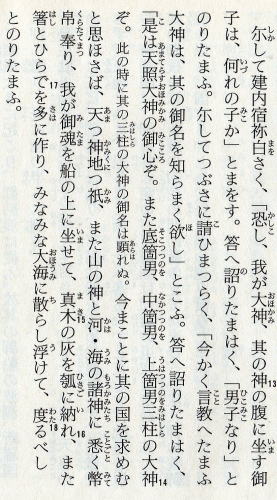 尓して建内宿祢白さく、「恐し、我が大神、其の神の腹に坐す御
子は、何れの子か」とまをす。答へ詔りたまはく、「男子なり」と
のりたまふ。尓してつぶさに請ひまつらく、「今かく言教へたまふ
大神は、其の御名を知らまく欲し」とこふ。答へ詔りたまはく、
「是は天照大神の御心ぞ。また底箇男 中箇男、上箇男三柱の大神
ぞ。此の時に其の三柱の大神の御名は顕れぬ。今まことに其の国を求めむ
と思ほさば、天つ神地つ祇、また山の神と河・海の諸神に悉く幣
帛奉り、我が御魂を船の上に坐せて、真木の灰を瓠に納れ、また
箸とひらでを多に作り、みなみな大海に散らし浮けて、度るべし
とのりたまふ。